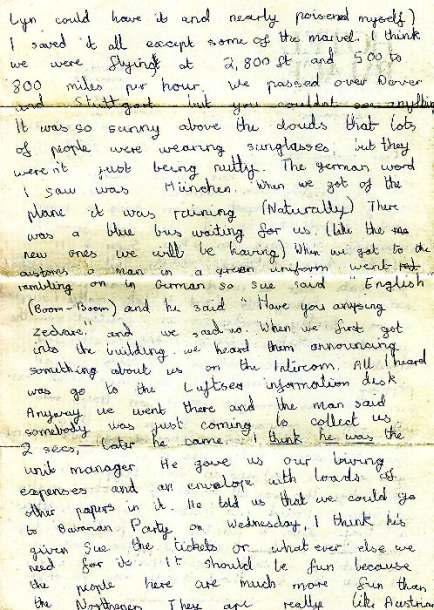 Lyn could have it and nearly poisoned myself)
I saved it all except some of the marvel. I think
we were flying at 2,800 ft and 500 to
800 miles per hour. We passed over Dover
and Stuttgart but you couldnt see anything
It was so sunny above the clouds that lots
of people were wearing sunglasses but they
weren't just being nutty. The german word
I saw was München. When we got of the
plane it was raining (Naturally) There
was a blue bus waiting for us. (like the
new ones we will be having) When we got to the
customs a man in a green uniform went
rambling on in German so sue said "English
(Boom-Boom) and he said "Have you anysing
zeclare." and we said no. When we first got
into the building we heard them announcing
something about us on the Intercom. All I heard
was go to the Luftsee information disk
Anyway we went there and the man said
somebody was just coming to collect us
2 secs, later he came. I think he was the
unit manager He gave us our living
expenses and an envelope with loads of
other papers in it. He told us that we could go
to Bavarian Party on Wednesday, I think his
given Sue the tickets or what ever else we
need for it. It should be fun because
the people here are much more fun than
the Northener They are really like Austrian